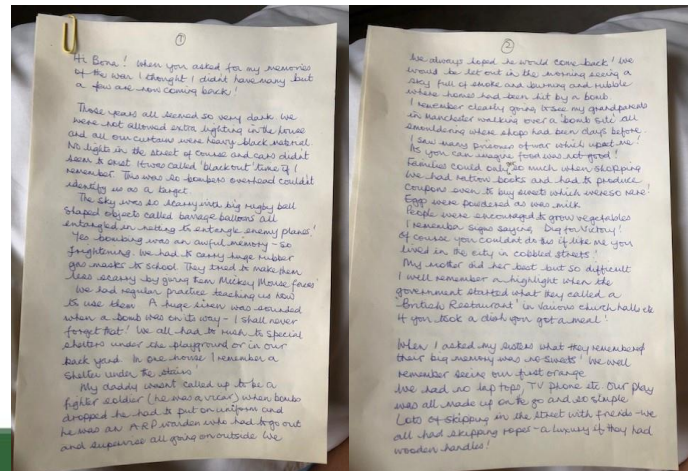 ①
Hi Bona! When you asked for my memories
of the war I thought I didn't have many but
a few are now coming back!
Those years all seemed so very dark. We
were not allowed extra lighting in the house
and all our curtains were heavy black material.
No lights in the street of course and cars didnt
seem to exist. It was called 'black out' time if I
remember. This was so bombers overhead couldn't
identify us as a target.
The sky was so scary with big rugby ball
shaped objects called barrage balloons all
entangled in netting to entangle enemy planes!
Yes bombing was an awful memory - so
frightening. We had to carry huge rubber
gas masks to school. They tried to make them
less scary by giving them Mickey Mouse faces!
We had regular practice teaching us how
to use them. A huge siren was sounded
when a bomb was on its way - I shall never
forget that! We all had to rush to special
shelters under the playground or in our
back yard. In one house I remember a
shelter under the stairs!
My daddy wasn't called up to be a
fighter soldier (he was a vicar) when bombs
dropped he had to put on uniform and
he was an A.R.P warden who had to go out
and supervise all going on outside. We
②
we always hoped he would come back! We
would be let out in the morning seeing a
sky full of smoke and burning and rubble
where houses had been hit by a bomb
I remember clearly going to see my grandparents
in Manchester walking over a 'bomb site' all
smouldering where shops had been days before.
I saw many prisoners of war which upset me!
As you can imagine food was not good!
Families could only so much when shopping
We had ration books and had to produce
coupons even to buy sweets which were so rare!
Egg were powdered as was milk
People were encouraged to grow vegetables
I remember signs saying 'Dig for Victory'!
Of course you couldnt do this if like me you
lived in the city in cobbled streets!
My mother did her best but so difficult
I well remember a highlight when the
government started what they called a
'British Restaurant' in various church halls etc
If you took a dish you got a meal!
When I asked my sisters what they remembered
their big memory was no sweets! We well
remember seeing our first orange
We had no lap tops, TV phone etc Our play
was all made up on the go and so simple
Lots of skipping in the street with friends - we
all had skipping ropes - a luxury if they had
wooden handles!